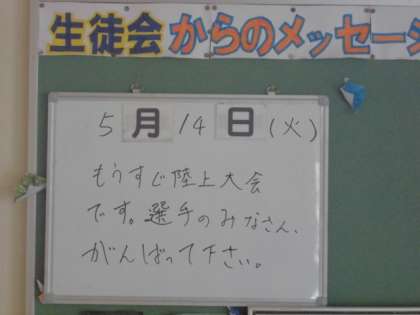 生徒会からのメッセージ
5月14日(火)
もうすぐ陸上大会
です。選手のみなさん、
がんばって下さい。